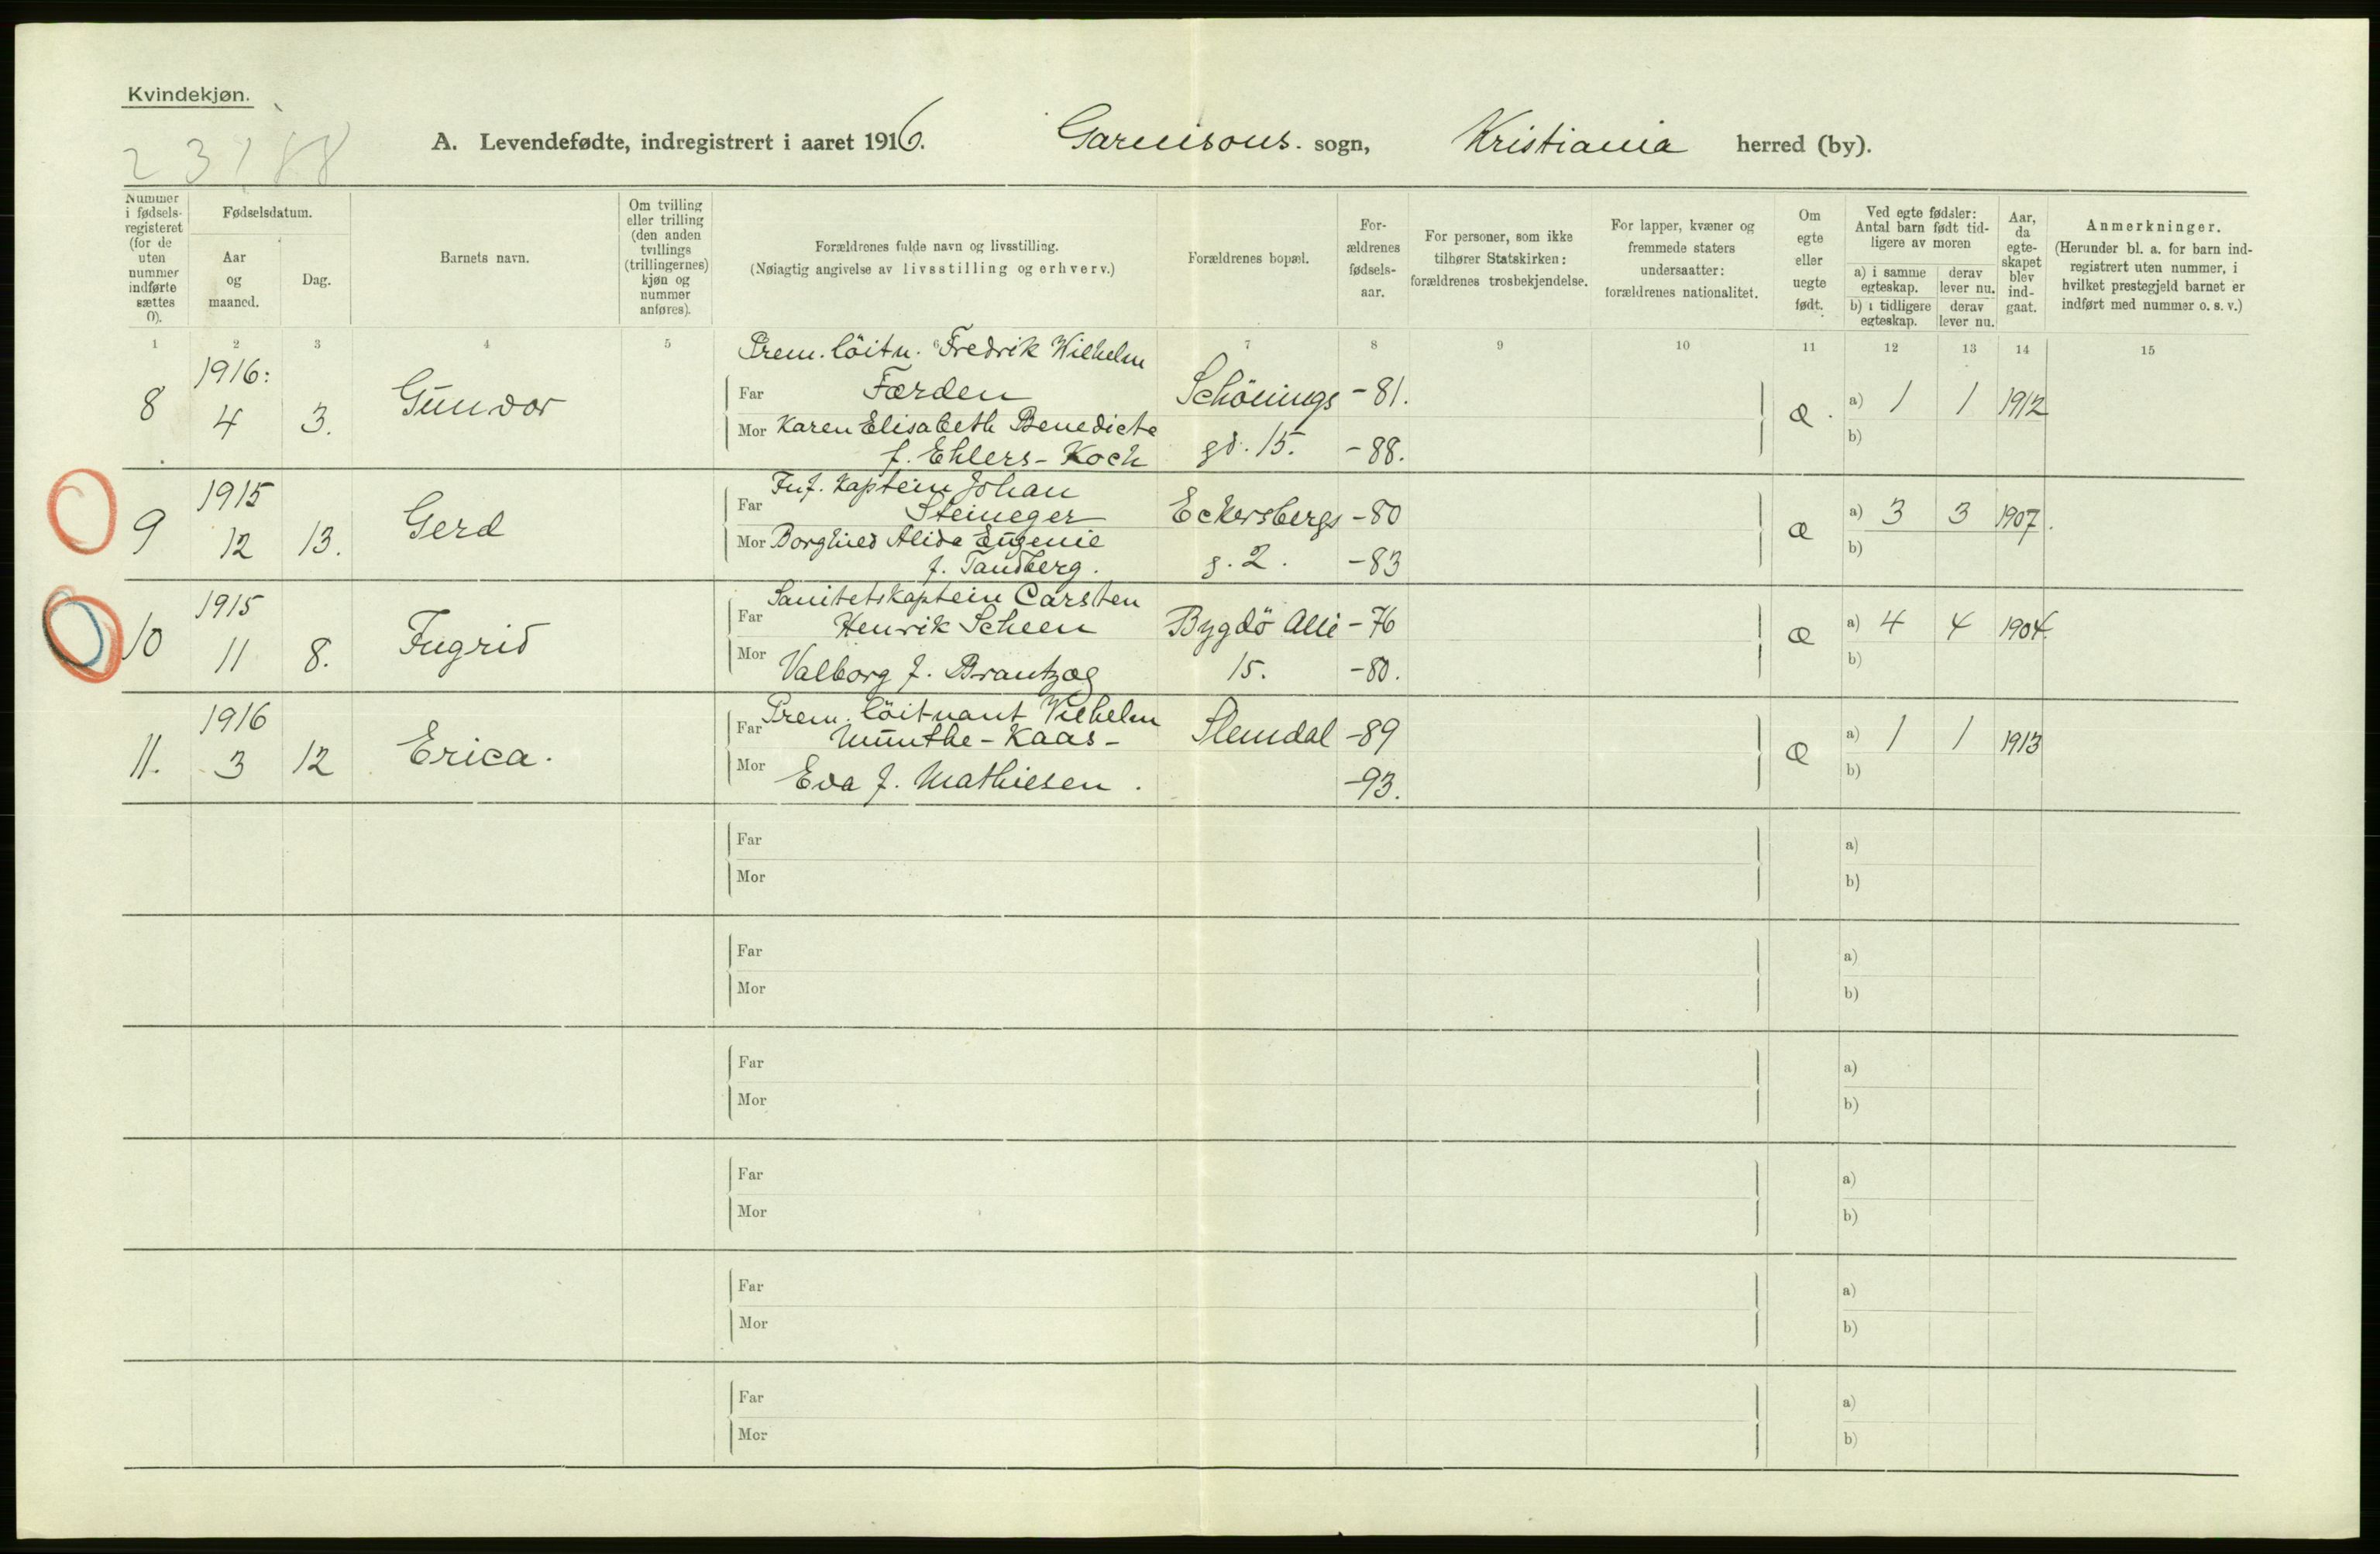 Kvindekjøn.
23188
A. Levendefødte, indregistrert i aaret 1916. Garnisons. sogn, Kristiania herred (by).
Nummer i fødsels-registeret (for de uten nummer indførte sættes 0).
Fødselsdatum.
Aar og maaned.
Dag.
Barnets navn.
Om tvilling eller trilling (den anden tvillings (trillingernes) kjøn og nummer anføres).
Forældrenes fulde navn og livsstilling.
(Nøiagtig angivelse av livsstilling og erhverv.)
Forældrenes bopæl.
For-ældrenes fødsels-aar.
For personer, som ikke tilhører Statskirken: forældrenes trosbekjendelse.
For lapper, kvæner og fremmede staters undersaatter: forældrenes nationalitet.
Om egte eller uegte født.
Ved egte fødsler: Antal barn født tid-ligere av moren
a) i samme egteskap.
derav lever nu.
b) i tidligere egteskap.
derav lever nu.
Aar, da egte-skapet blev ind-gaat.
Anmerkninger.
(Herunder bl. a. for barn ind-registrert uten nummer, i hvilket prestegjeld barnet er indført med nummer o. s. v.)
1 2 3 4 5 6 7 8 9 10 11 12 13 14 15
Prem. löitn. Fredrik Wilhelm
1916:
8 4 3. Gunvor Far Færden Schönings -81. æ. a) 1 1 1912
Mor Karen Elisabeth Benedicte
f. Ehlers-Koch gd. 15. -88. b)
1915 Inf. Kaptein Johan
9 12 13. Gerd Far Steineger Eckersbergs -80 æ a) 3 3 1907.
Mor Borghild Alida Eugenie
f. Tandberg. g. 2. -83 b)
1915 Sanitetskaptein Carsten
10 11 8. Ingrid Far Henrik Scheen Bygdö Alle -76 æ a) 4 4 1904.
Mor Valborg f. Brantzæg 15. -80. b)
1916 Prem. löitnant Vilhelm
11. 3 12 Erica. Far Munthe-Kaas- Slemdal -89 æ a) 1 1 1913
Mor Eva f. Mathiesen. -93. b)
Far a)
Mor b)
Far a)
Mor b)
Far a)
Mor b)
Far a)
Mor b)
Far a)
Mor b)
Far a)
Mor b)